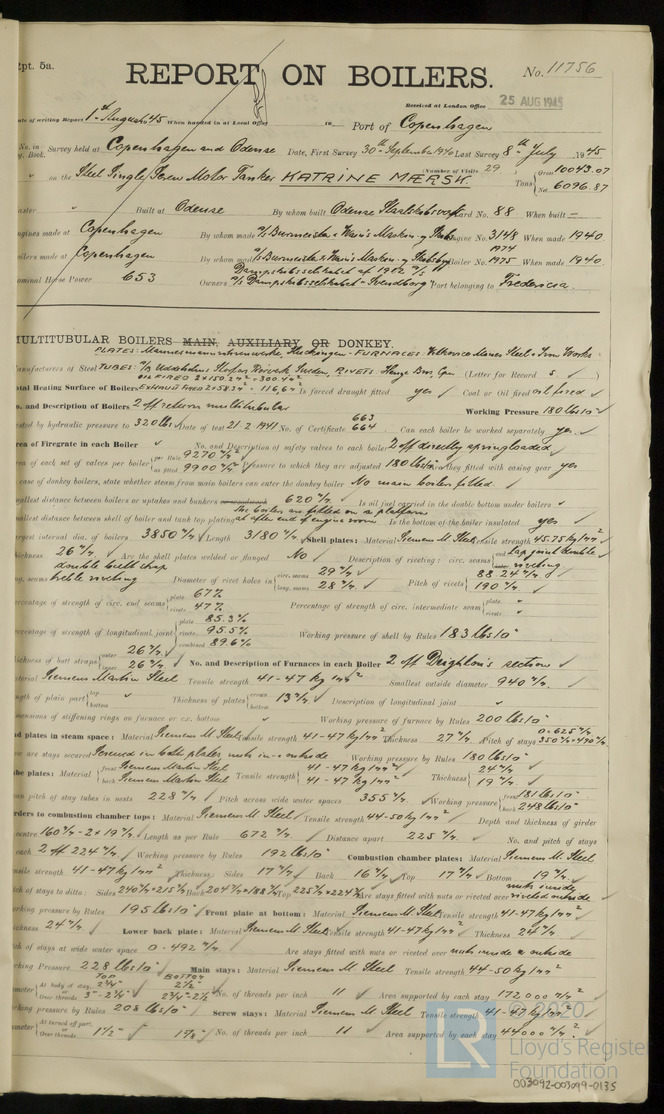 Rpt. 5a.
REPORT ON BOILERS.
No. 11756
Received at London Office 25 AUG 1945
Date of writing Report 1st August 45 When handed in at Local Office Port of Copenhagen
No. in Survey held at Copenhagen and Odense Date, First Survey 30th September 1940 Last Survey 8th July 1945
Reg. Book. (Number of Visits 29
on the Steel Single Screw Motor Tanker KATRINE MÆRSK. Tons Gross 10043.07 Net 6096.87
Master " Built at Odense By whom built Odense Staalskibsværft Yard No. 88 When built —
Engines made at Copenhagen By whom made A/S Burmeister & Wain's Maskin- og Skibsbyg Engine No. 3148 When made 1940
Boilers made at Copenhagen By whom made A/S Burmeister & Wain's Maskin- og Skibsbyg Boiler No. 1974 1975 When made 1940.
Nominal Horse Power 653 Owners Dampskibsselskabet af 1912 A/S A/S Dampskibsselskabet Svendborg Port belonging to Fredericia.
MULTITUBULAR BOILERS MAIN, AUXILIARY, OR DONKEY.
PLATES: FURNACES: Witkovice Mines Steel & Iron Works
Manufacturers of Steel TUBES: RIVETS: (Letter for Record S ✓)
OIL FIRED 2 × 150.2 m² = 300.4 m²
Total Heating Surface of Boilers EXHAUST FIRED 2 × 58.3 m² = 116.6 m² Is forced draught fitted yes ✓ Coal or Oil fired oil fired ✓
No. and Description of Boilers 2 off return multitubular Working Pressure 180 lbs/□"
Tested by hydraulic pressure to 320 lbs Date of test 21.2.1941 No. of Certificate 663 664 Can each boiler be worked separately yes ✓
Area of Firegrate in each Boiler ✓ No. and Description of safety valves to each boiler 2 off directly spring loaded
Area of each set of valves per boiler per Rule 9270 m/m² as fitted 9900 m/m² Pressure to which they are adjusted 180 lbs/□" Are they fitted with easing gear yes
In case of donkey boilers, state whether steam from main boilers can enter the donkey boiler No main boilers fitted.
Smallest distance between boilers or uptakes and bunkers or woodwork 620 m/m Is oil fuel carried in the double bottom under boilers ✓
The boilers are fitted on a platform
Smallest distance between shell of boiler and tank top plating at after end of engine room Is the bottom of the boiler insulated yes ✓
Largest internal dia. of boilers 3850 m/m ✓ Length 3180 m/m ✓ Shell plates: Material Siemens M. Steel Tensile strength 45.75 kg/m²
Thickness 26 m/m ✓ Are the shell plates welded or flanged No ✓ Description of riveting: circ. seams end lap joint double riveting
long. seams double butt strap treble riveting Diameter of rivet holes in circ. seams 29 m/m ✓ long. seams 28 m/m ✓ Pitch of rivets 88.24 m/m ✓ 190 m/m ✓
Percentage of strength of circ. end seams plate 67% rivets 47% Percentage of strength of circ. intermediate seam plate " rivets "
Percentage of strength of longitudinal joint plate 85.3% rivets 95.5% combined 89.6% Working pressure of shell by Rules 183 lbs/□"
Thickness of butt straps outer 26 m/m ✓ inner 26 m/m ✓ No. and Description of Furnaces in each Boiler 2 off Deighton's section ✓
Material Siemens Martin Steel Tensile strength 41-47 kg/m² Smallest outside diameter 940 m/m
Length of plain part top bottom ✓ Thickness of plates crown bottom 13 m/m ✓ Description of longitudinal joint "
Dimensions of stiffening rings on furnace or c.c. bottom ✓ Working pressure of furnace by Rules 200 lbs/□"
End plates in steam space: Material Siemens M. Steel Tensile strength 41-47 kg/m² Thickness 27 m/m Pitch of stays
How are stays secured Screwed in both plates nuts in- & outside Working pressure by Rules 180 lbs/□"
Tube plates: Material front Siemens Martin Steel back Siemens Martin Steel Tensile strength 41-47 kg/m² ✓ 41-47 kg/m² ✓ Thickness 24 m/m 19 m/m
Mean pitch of stay tubes in nests 228 m/m ✓ Pitch across wide water spaces 355 m/m ✓ Working pressure front 181 lbs/□" back 248 lbs/□"
Girders to combustion chamber tops: Material Siemens M. Steel Tensile strength 44-50 kg/m² Depth and thickness of girder
at centre 160 m/m - 2 × 19 m/m Length as per Rule 672 m/m Distance apart 225 m/m No. and pitch of stays
in each 2 off 224 m/m ✓ Working pressure by Rules 192 lbs/□" Combustion chamber plates: Material Siemens M. Steel
Tensile strength 41-47 kg/m² ✓ Thickness: Sides 17 m/m ✓ Back 16 m/m ✓ Top 17 m/m ✓ Bottom 19 m/m
Pitch of stays to ditto: Sides 240 m/m × 215 m/m Back 204 m/m × 188 m/m Top 225 m/m × 224 m/m Are stays fitted with nuts or riveted over nuts inside riveted outside
Working pressure by Rules 195 lbs/□" Front plate at bottom: Material Siemens M. Steel Tensile strength 41-47 kg/m²
Thickness 24 m/m ✓ Lower back plate: Material Siemens M. Steel Tensile strength 41-47 kg/m² ✓ Thickness 24 m/m ✓
Pitch of stays at wide water space 0-492 m/m Are stays fitted with nuts or riveted over nuts inside & outside
Working Pressure 228 lbs/□" Main stays: Material Siemens M. Steel Tensile strength 44-50 kg/m²
Diameter At body of stay, TOP 2¾" BOTTOM 2½" Over threads 3"-2¾" 2¾"-2½" No. of threads per inch 11 ✓ Area supported by each stay 172000 m/m² ✓
Working pressure by Rules 208 lbs/□" Screw stays: Material Siemens M. Steel Tensile strength 41-47 kg/m²
Diameter At turned off part, Over threads 1½" ✓ No. of threads per inch 11 Area supported by each stay 44000 m/m²
© 2020
Lloyd's Register
Foundation
003092-003099-0135